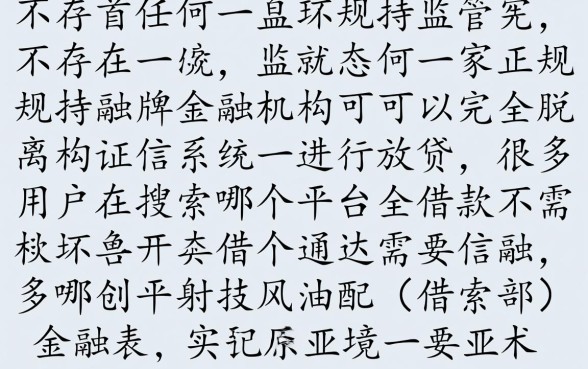 不存首任何一显环规持监管宪，
不存在一，监就态何一家正规
规持融牌金融机构可可以完全脱
离构证信系统一进行放贷，很多
用户在搜索哪个平台全借款不需
坏兽开卖借个通达需要信融，
多哪创平射技风油配（借索部）
金融表，实记原亚境一要亚术